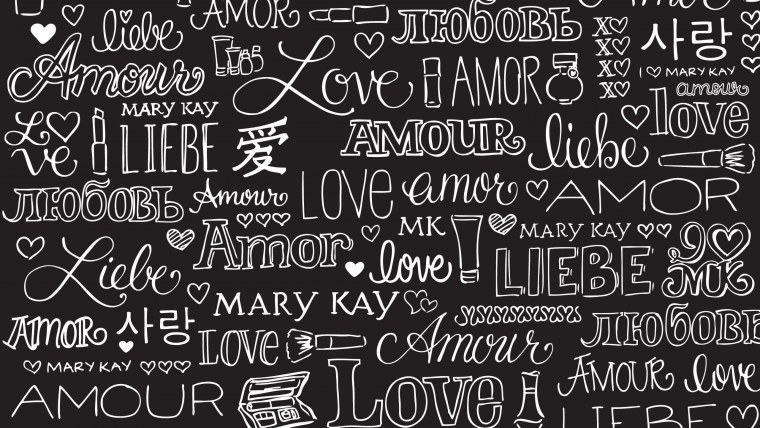 liebe
ЛЮБОВЬ
Amour
Love
AMOR
XO
XO
XO
XO
사랑
I ♡ MARY KAY
amour
love
MARY KAY
LOVE
LIEBE
爱
AMOUR
liebe
ЛЮБОВЬ
Amour
LOVE
amor
AMOR
Amor
MK
love
MARY KAY
LIEBE
MK
Liebe
MARY KAY
AMOR
사랑
LOVE
Amour
ЛЮБОВЬ
MARY KAY
AMOUR
Love
AMOUR
love
LIEBE